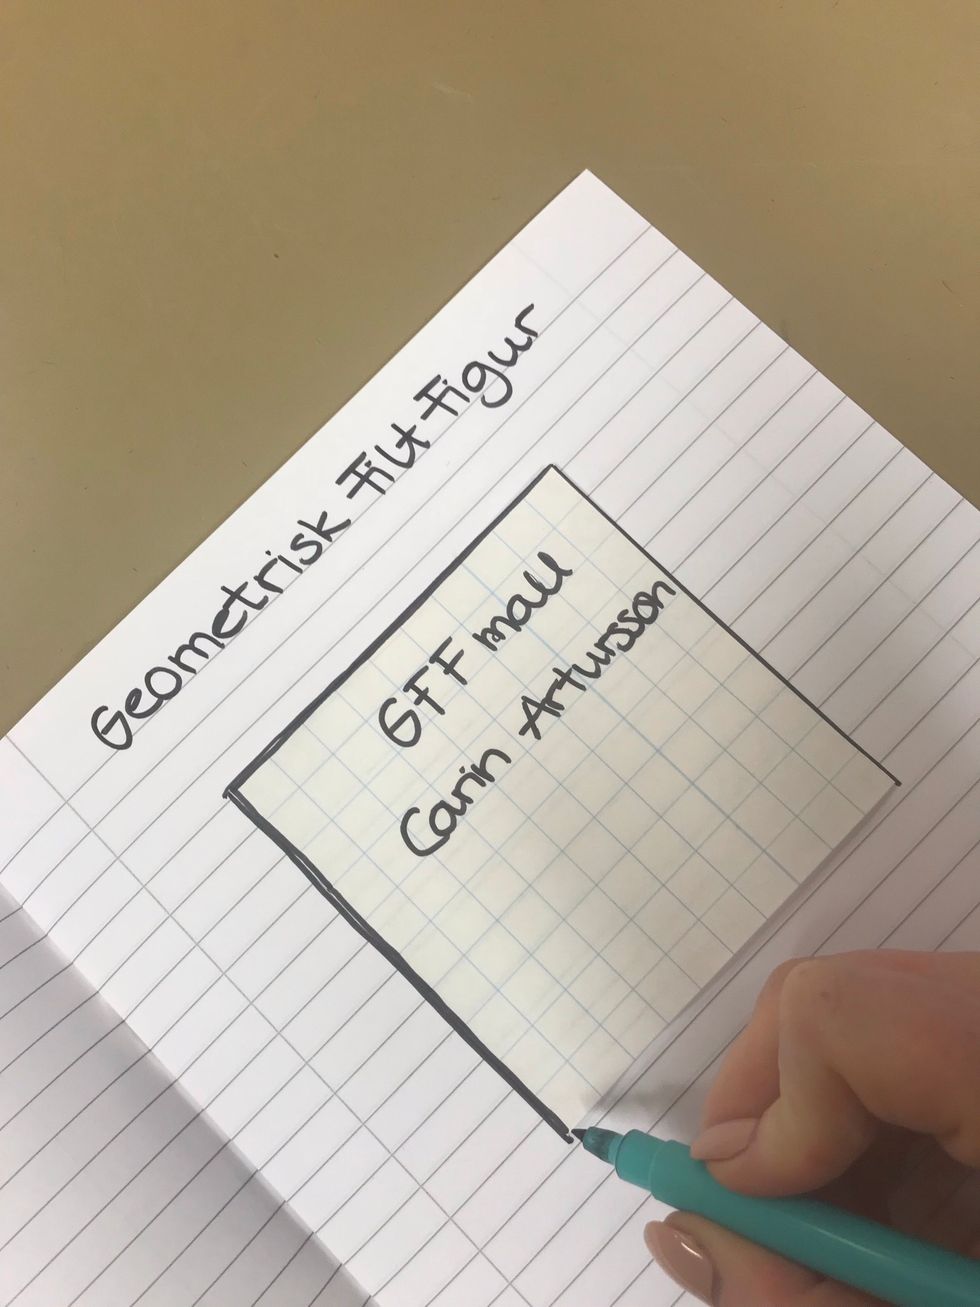 Geometrisk Filt Figur
GFF mall
Carin Artursson